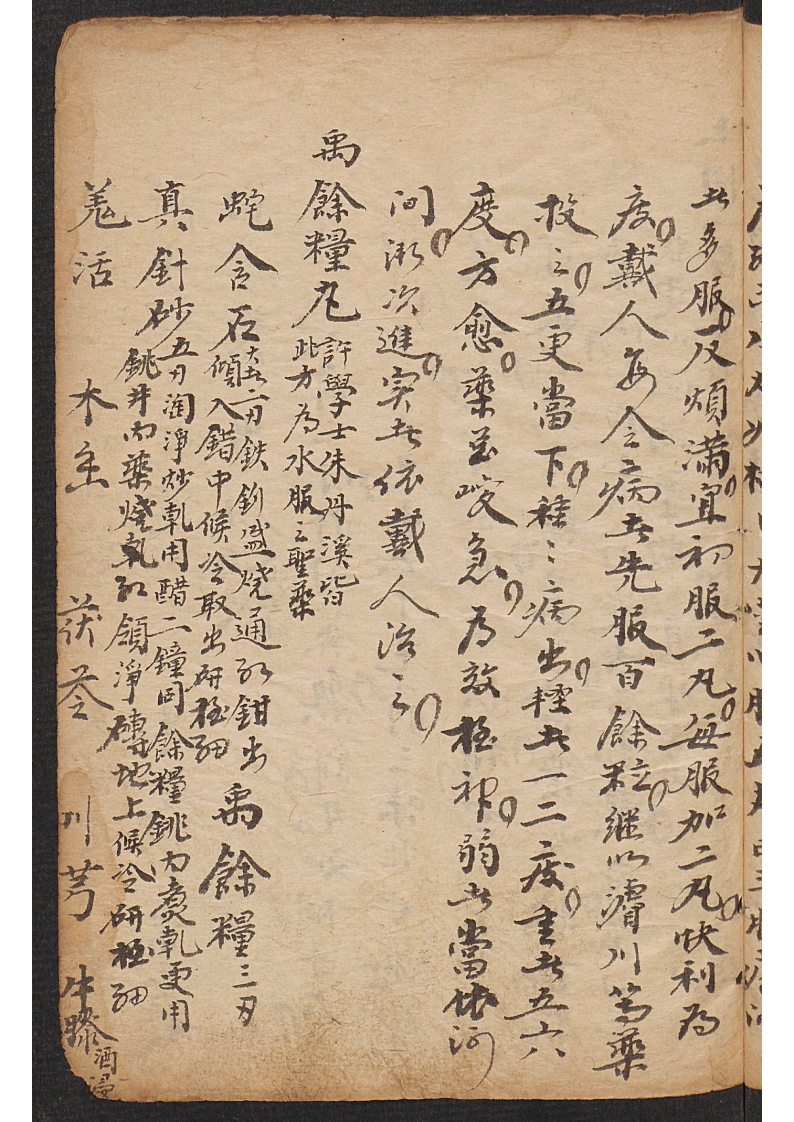 者多服反煩滿宜初服二丸每服加二丸快利為
度戴人每令病者先服百餘粒継以濬川等藥
投之五更當下種〻病出軽者一二度重者五六
度方愈藥虽峻急為效极神弱者當依河
间渐次進实者依戴人治之
禹餘糧丸 許學士朱丹溪皆
此方為水服之聖藥
蛇含石 大者一刄鉄釗盛燒通紅鉗出
傾入醋中候冷取出研极細 禹餘糧三刄
真針砂 五刄淘淨炒乹用醋二鐘同餘糧銚內煑乹更用
銚并药燒乹紅傾淨磚地上候冷研极細
羗活 木 茯苓 川芎 牛膝 酒浸